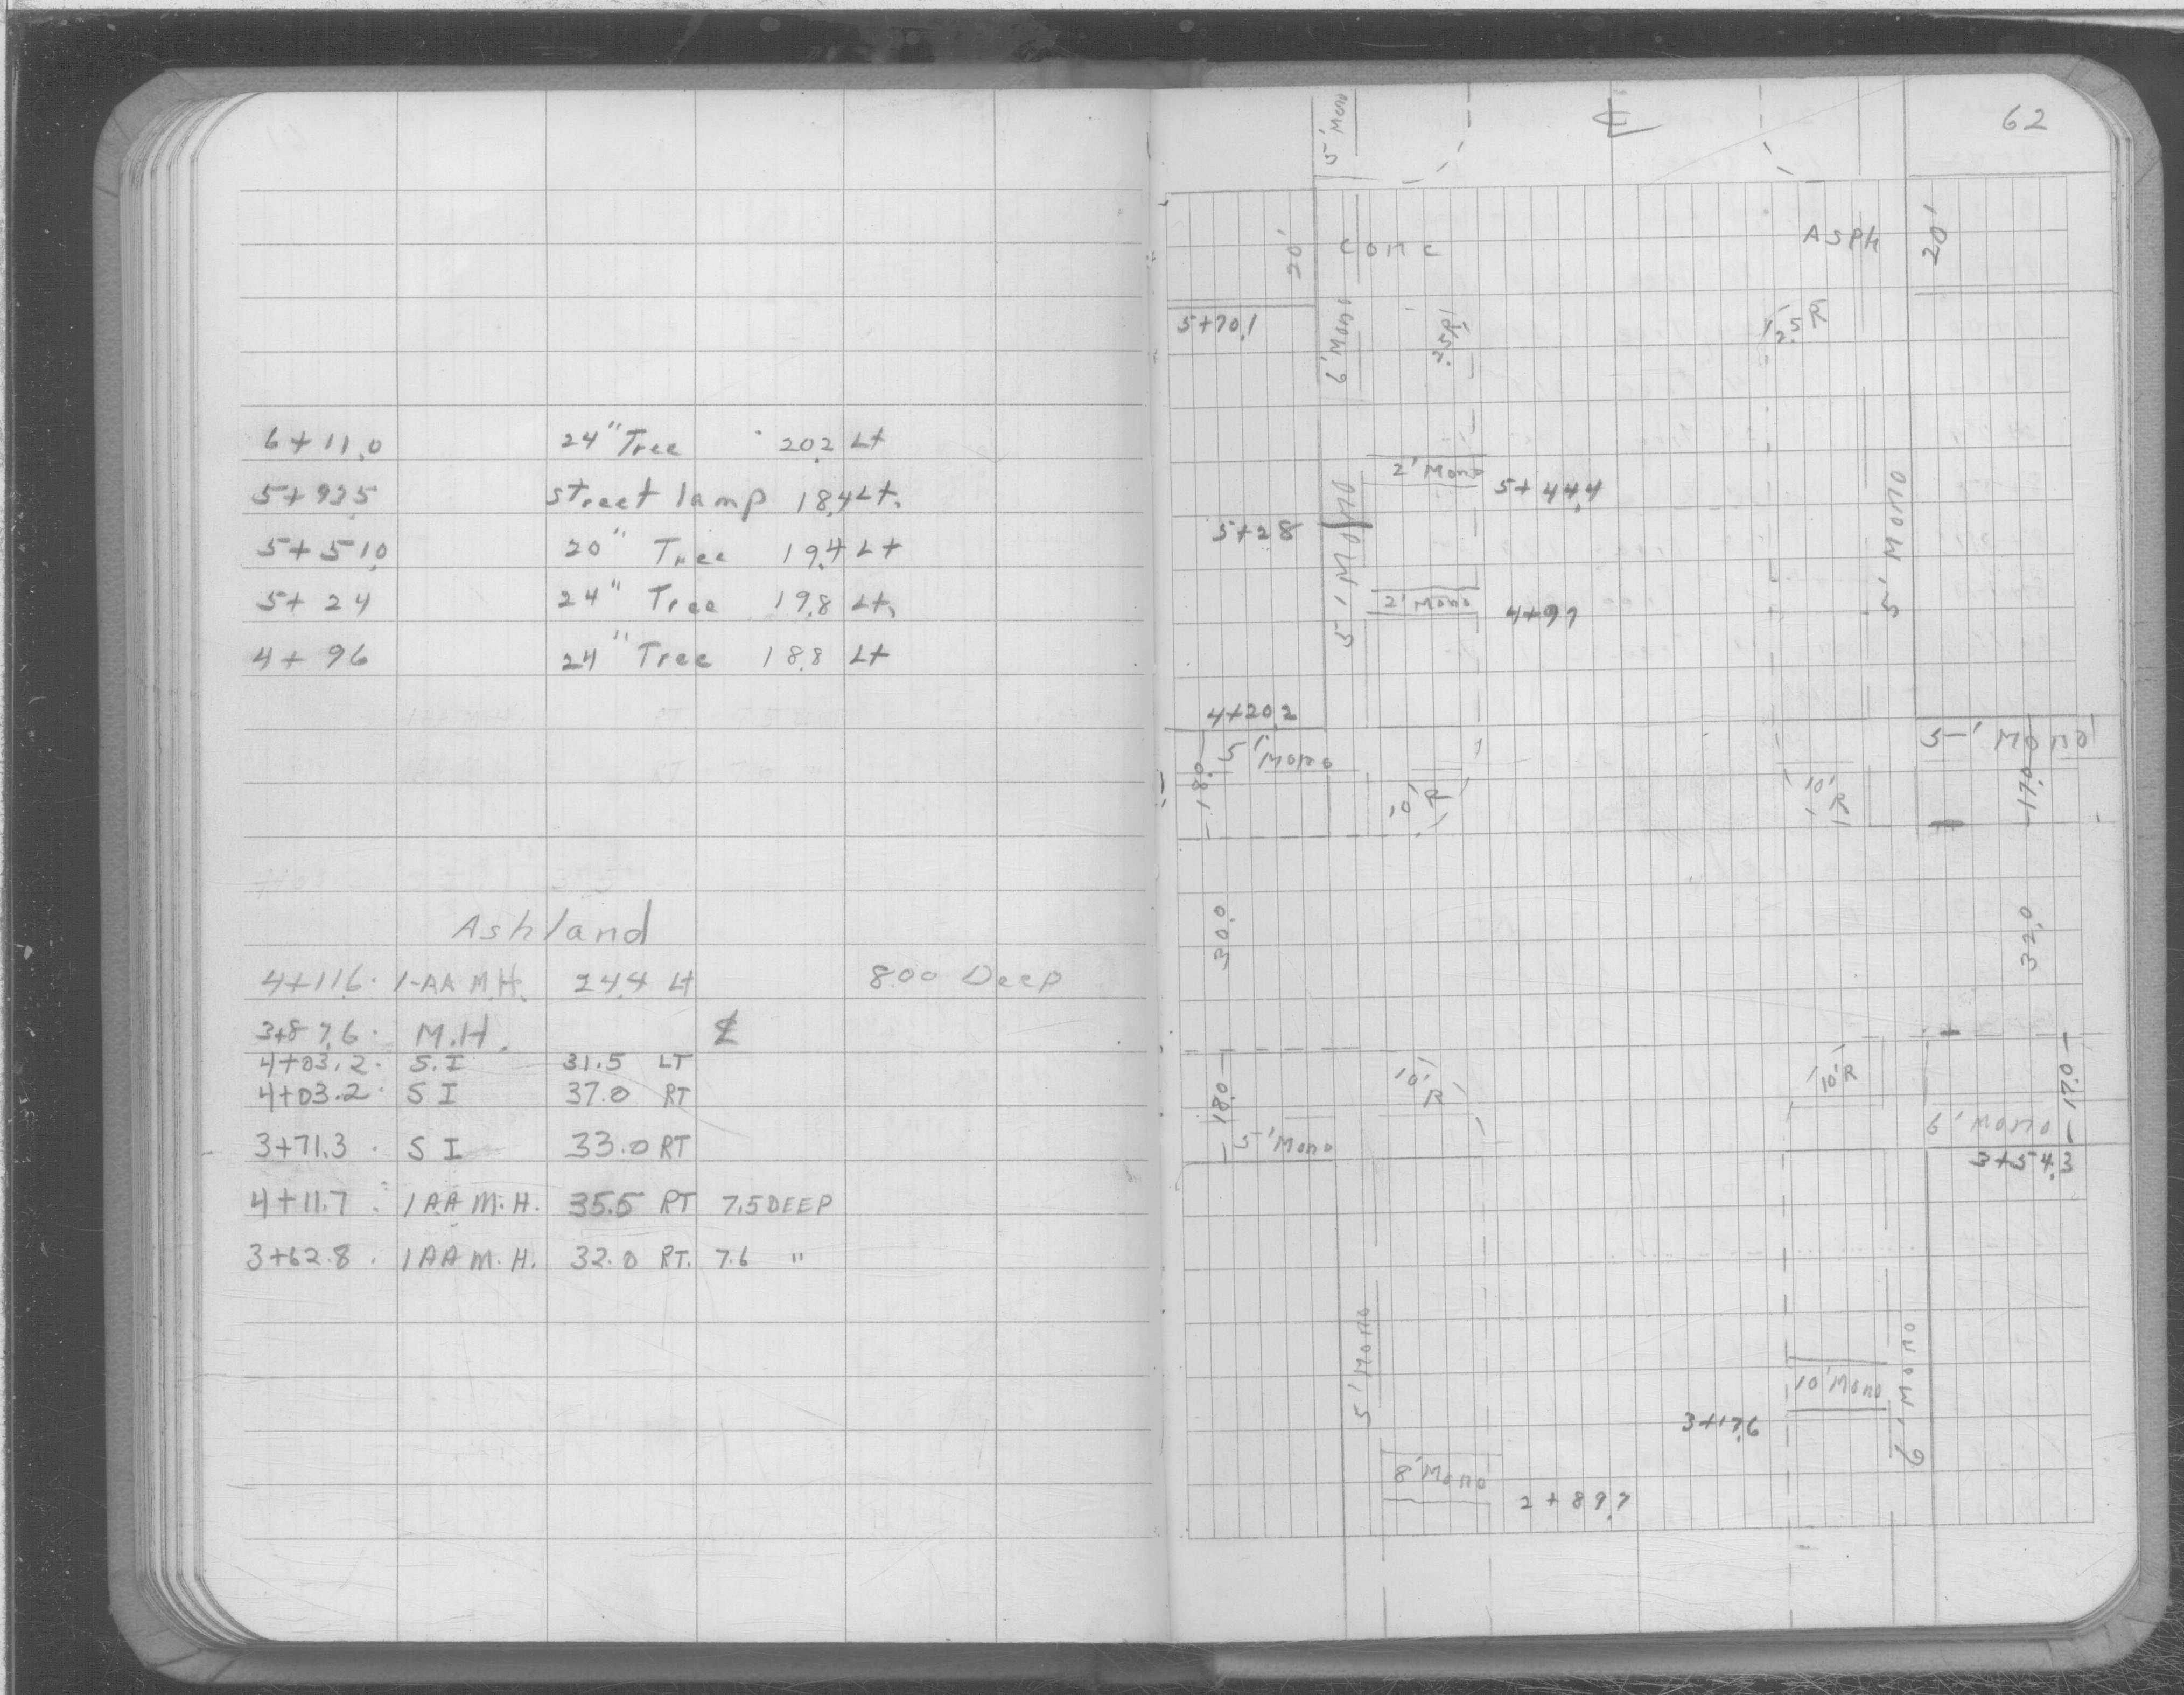 6+11.0 24" Tree 20.2 Lt
5+93.5 street lamp 18.4 Lt.
5+51.0 20" Tree 19.4 Lt
5+24 24" Tree 19.8 Lt.
4+96 24" Tree 18.8 Lt
Ashland
4+11.6 1-AA M.H. 24.4 Lt 8.00 Deep
3+87.6 M.H. ℄
4+03.2 S.I 31.5 LT
4+03.2 S I 37.0 RT
3+71.3 S I 33.0 RT
4+11.7 1AA M.H. 35.5 RT 7.5 DEEP
3+62.8 1AA M.H. 32.0 RT. 7.6 "
62
5' Mono ℄
20' conc Asph 20'
5+70.1 6' Mono 2.5R' 12.5R
2' Mono 5+44.4
5+28 5' Mono 5' Mono
2' Mono 4+97
4+20.2
18.0 5' Mono 5' Mono
10' R 10' R 17.0
30.0 32.0
18.0 10' R 10' R 17.0
5' Mono 6' Mono
3+54.3
5' Mono 10' Mono 6' Mono
3+17.6
8' Mono
2+89.7